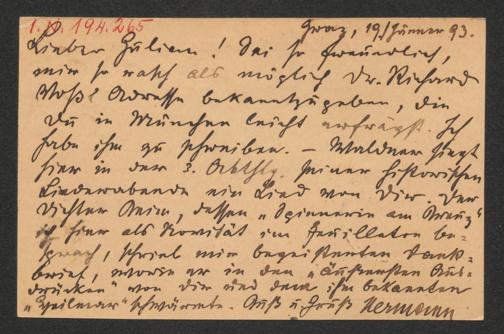 I.N. 194.265
Graz, 19/Jänner 93.
Lieber Julian! Sei so freundlich,
mir so rasch als möglich Dr. Richard
Voß' Adresse bekanntzugeben, die
Du in München leicht erfrägst. Ich
habe ihm zu schreiben. – Waldner singt
hier in der 3. Abthlg. seiner historischen
Liederabende ein Lied von Dir. Der
Dichter Keim, dessen „Spinnerin am Kreuz"
ich hier als Novität im Feuilleton be-
sprach, schrieb mir begeisterten Dank-
brief, worin er in den „äußersten Aus-
drücken" von Dir und dem ihm bekannten
schwärmte. Kuß u. Gruß Hermann